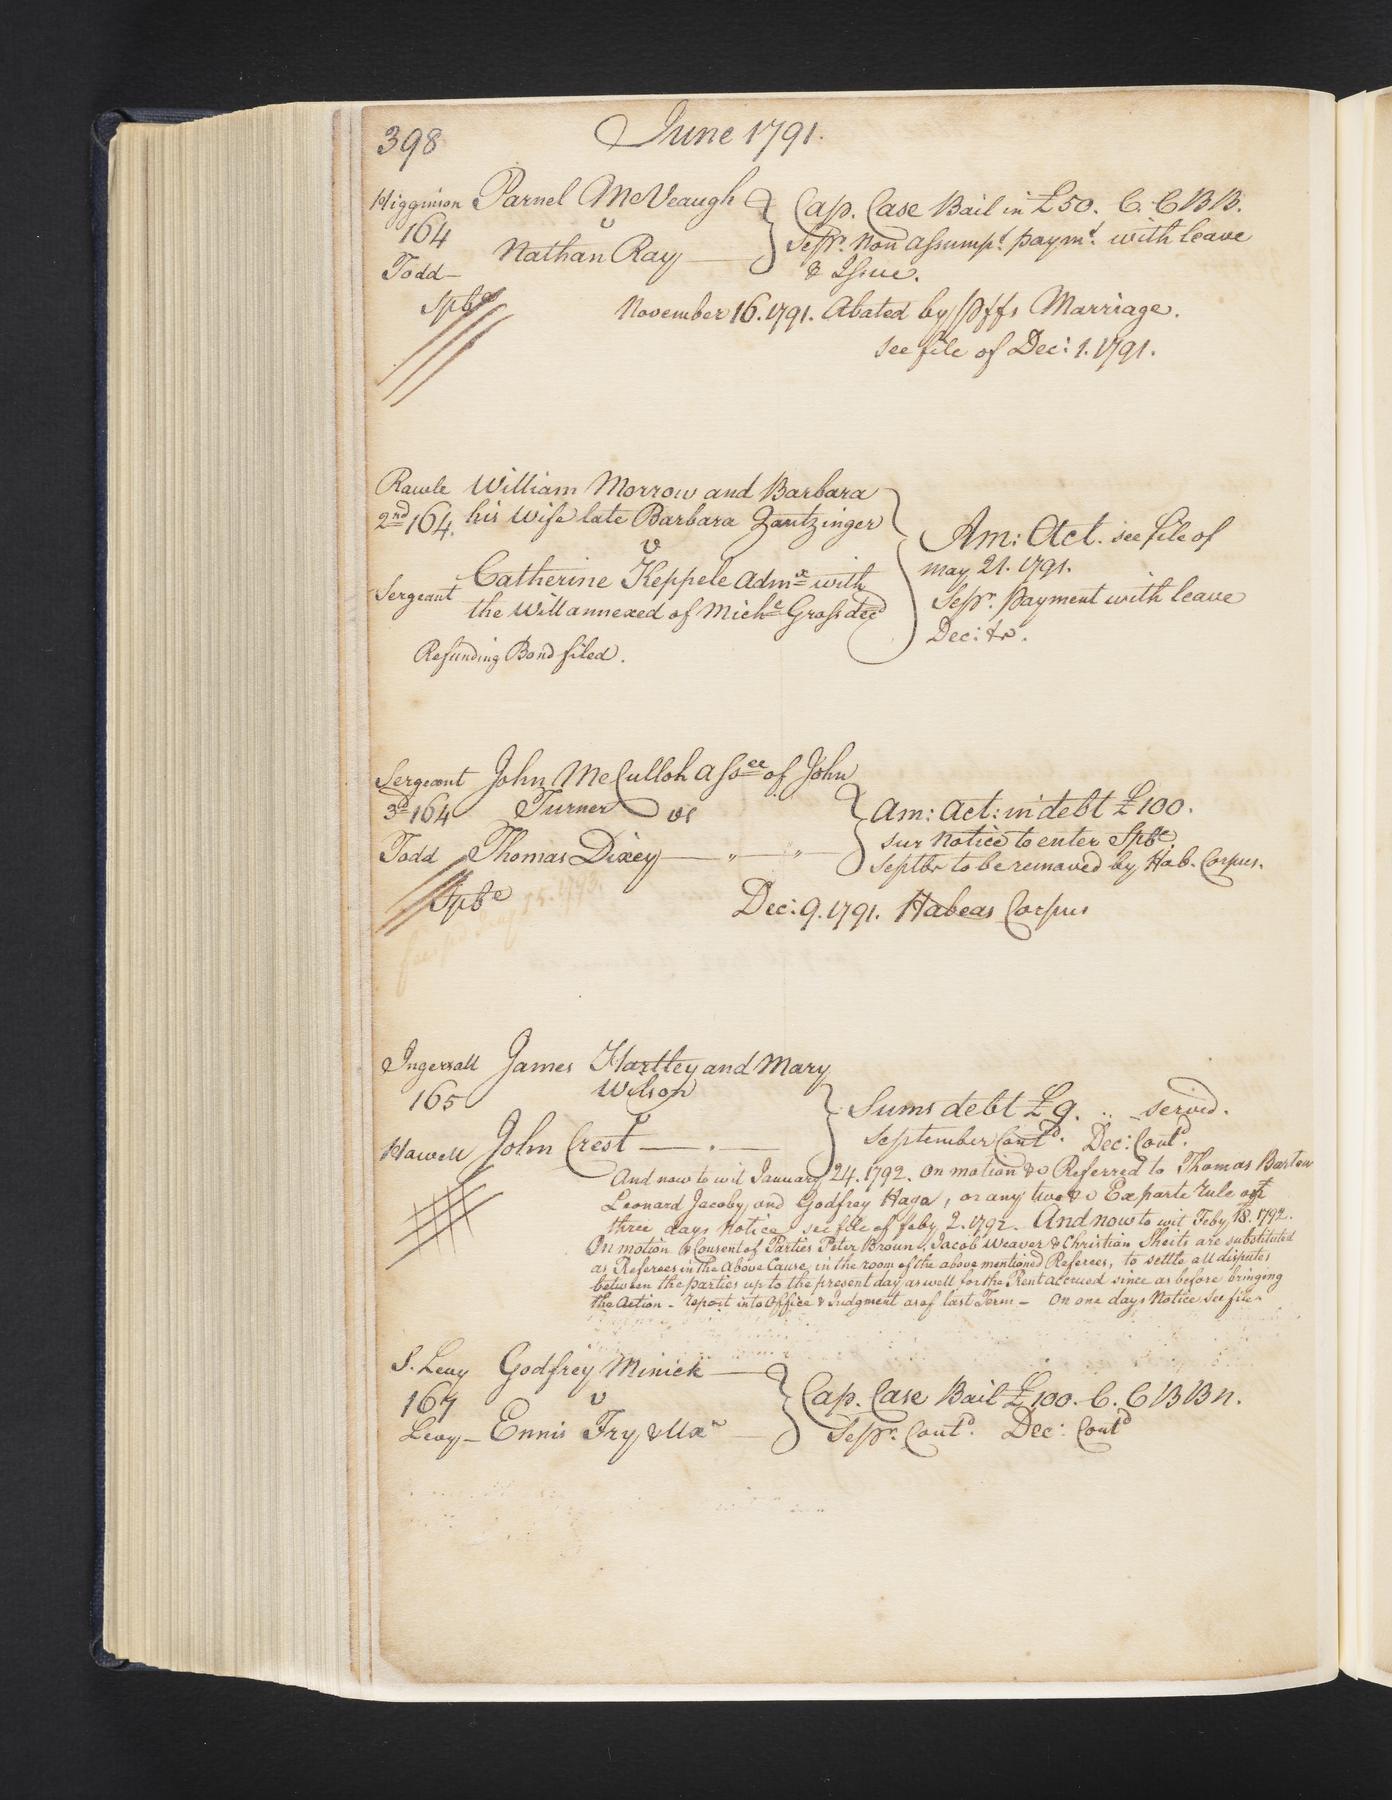 398 June 1791.
Higginson Parnel McVeaugh Cap. Case Bail in £50. C. C B B.
164 v Sepr. Non assumpt. paymt. with leave
Todd— Nathan Ray — & Issue.
Spbe November 16. 1791. Abated by Plffs Marriage.
see file of Dec: 1. 1791.
Rawle William Morrow and Barbara
2nd 164. his Wife late Barbara Zantzinger Am: Act. see file of
v may 21. 1791.
Sergeant Catherine Keppele Admx with Sepr. payment with leave
the Will annexed of Michl Grofs decd Dec: &c.
Refunding Bond filed.
Sergeant John McCulloh Assee of John
3d 164 Turner vs Am: Act: in debt £100.
Todd Thomas Dixey — " — " — sur Notice to enter Spbe
Spbe Septbr to be removed by Hab. Corpus.
Dec: 9. 1791. Habeas Corpus
15. 1793.
Ingersoll James Hartley and Mary
165 Wilson Sums debt £9. .. served.
v September Contd. Dec: Contd.
Howell John Crest — . —
And now to wit January 24. 1792. On motion &c Referred to Thomas Barton
Leonard Jacoby and Godfrey Haga, or any two &c Ex parte rule on
three days Notice see file of feby 2. 1792. And now to wit Feby 18. 1792.
On motion & Consent of Parties Peter Broun, Jacob Weaver & Christian Sheits are substituted
as Referees in the Above Cause, in the room of the above mentioned Referees, to settle all disputes
between the parties up to the present day as well for the Rent accrued since as before bringing
the Action - report into Office & Judgment as of last Term — On one days Notice see file.
S. Levy Godfrey Minick — Cap. Case Bail £100. C. C B B n.
167 v Sepr. Contd. Dec: Contd
Levy— Ennis Fry & Ux —